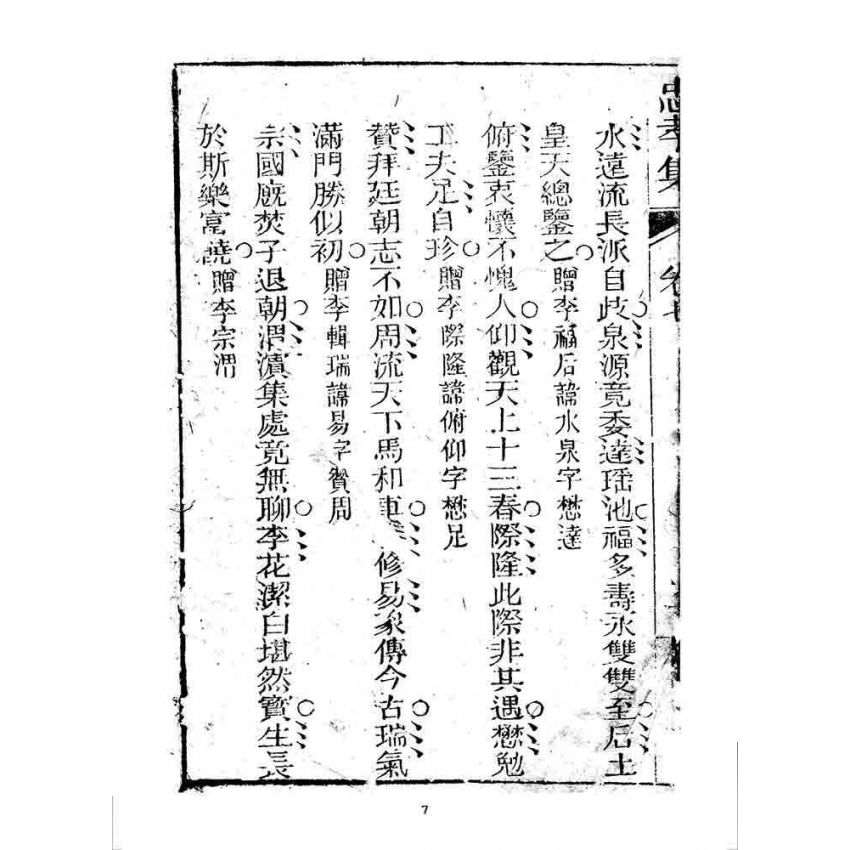 忠孝集 卷七
水遠流長派自歧泉源竟委達瑤池福多壽永雙雙至后土
皇天總鑒之贈李福后諱水泉字懋達
俯鑒衷懷不愧人仰觀天上十三春際隆此際非其遇懋勉
工夫足自珍贈李際隆諱俯仰字懋足
贊拜廷朝志不如周流天下馬和車修易象傳今古瑞氣
滿門勝似初贈李輯瑞諱易字贊周
宗國廐焚子退朝渭濱集處竟無聊李花潔白堪然寳生長
於斯樂富饒贈李宗渭
7